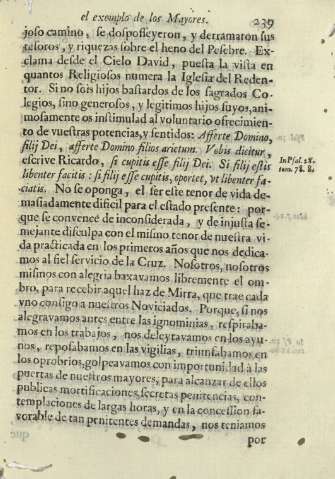 el exemplo de los Mayores. 239
joso camino, se desposseyeron, y derramaron sus
tesoros, y riquezas sobre el heno del Pesebre. Ex-
clama desde el Cielo David, puesta la vista en
quantos Religiosos numera la Iglesia del Reden-
tor. Si no sois hijos bastardos de los sagrados Co-
legios, sino generosos, y legitimos hijos suyos, ani-
mosamente os instimulad al voluntario ofrecimien-
to de vuestras potencias, y sentidos: Afferte Domino,
filij Dei, afferte Domino filios arietum. Vobis dicitur,
escrive Ricardo, si cupitis esse filij Dei. Si filij estis
libenter facitis: si filij esse cupitis, oportet, vt libenter fa-
ciatis. No se oponga, el ser este tenor de vida de-
masiadamente dificil para el estado presente: por-
que se convence de inconsiderada, y de injusta se-
mejante disculpa con el mismo tenor de nuestra vi-
da practicada en los primeros años que nos dedica-
mos al fiel servicio de la Cruz. Nosotros, nosotros
mismos con alegria baxavamos libremente el om-
bro, para recebir aquel haz de Mirra, que trae cada
vno consigo a nuestros Noviciados. Porque, si nos
alegravamos antes entre las ignominias, respiraba-
mos en los trabajos, nos deleytavamos en los ayu-
nos, reposabamos en las vigilias, triunfabamos en
los oprobrios, golpeavamos con importunidad à las
puertas de nuestros mayores, para alcanzar de ellos
publicas mortificaciones, secretas penitencias, con-
templaciones de largas horas, y en la concession fa-
vorable de tan penitentes demandas, nos teniamos
por
In Psal. 28.
tom. 78. 8.